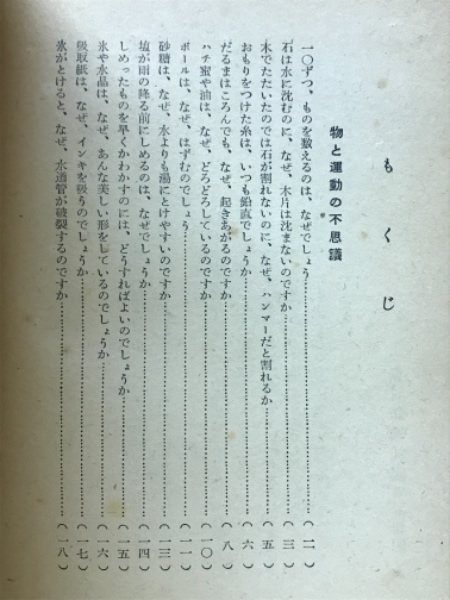 もくじ
物と運動の不思議
一〇ずつ、ものを数えるのは、なぜでしょう……………(二)
石は水に沈むのに、なぜ、木片は沈まないのですか……………(三)
木でたたいたのでは石が割れないのに、なぜ、ハンマーだと割れるか……………(五)
おもりをつけた糸は、いつも鉛直でしょうか……………(六)
だるまはころんでも、なぜ、起きあがるのですか……………(八)
ハチ蜜や油は、なぜ、どろどろしているのですか……………(一〇)
ボールは、なぜ、はずむのでしょう……………(一一)
砂糖は、なぜ、水よりも湯にとけやすいのですか……………(一三)
塩が雨の降る前にしめるのは、なぜでしょうか……………(一四)
しめったものを早くかわかすのには、どうすればよいのでしょうか……………(一五)
氷や水晶は、なぜ、あんな美しい形をしているのでしょうか……………(一六)
吸取紙は、なぜ、インキを吸うのでしょうか……………(一七)
氷がとけると、なぜ、水道管が破裂するのですか……………(一八)